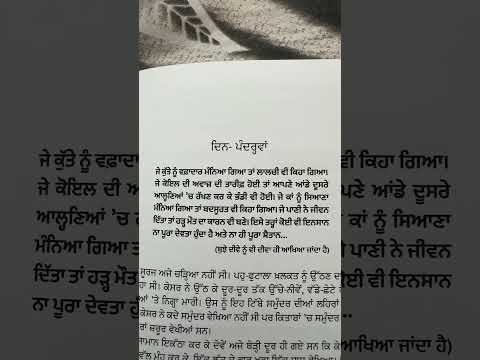 ਦਿਨ- ਪੰਦਰ੍ਹਵਾਂ
ਜੇ ਕੁੱਤੇ ਨੂੰ ਵਫ਼ਾਦਾਰ ਮੰਨਿਆ ਗਿਆ ਤਾਂ ਲਾਲਚੀ ਵੀ ਕਿਹਾ ਗਿਆ।
ਜੇ ਕੋਇਲ ਦੀ ਅਵਾਜ਼ ਦੀ ਤਾਰੀਫ਼ ਹੋਈ ਤਾਂ ਆਪਣੇ ਆਂਡੇ ਦੂਸਰੇ
ਆਲ੍ਹਣਿਆਂ 'ਚ ਰੱਖਣ ਕਰ ਕੇ ਭੰਡੀ ਵੀ ਹੋਈ। ਜੇ ਕਾਂ ਨੂੰ ਸਿਆਣਾ
ਮੰਨਿਆ ਗਿਆ ਤਾਂ ਬਦਸੂਰਤ ਵੀ ਕਿਹਾ ਗਿਆ। ਜੇ ਪਾਣੀ ਨੇ ਜੀਵਨ
ਦਿੱਤਾ ਤਾਂ ਹੜ੍ਹ ਮੌਤ ਦਾ ਕਾਰਨ ਵੀ ਬਣੇ। ਇਸੇ ਤਰ੍ਹਾਂ ਕੋਈ ਵੀ ਇਨਸਾਨ
ਨਾ ਪੂਰਾ ਦੇਵਤਾ ਹੁੰਦਾ ਹੈ ਅਤੇ ਨਾ ਹੀ ਪੂਰਾ ਸ਼ੈਤਾਨ...
(ਬੁਝੇ ਦੀਵੇ ਨੂੰ ਵੀ ਦੀਵਾ ਹੀ ਆਖਿਆ ਜਾਂਦਾ ਹੈ)
ਸੂਰਜ ਅਜੇ ਚੜ੍ਹਿਆ ਨਹੀਂ ਸੀ। ਪਹੁ-ਫੁਟਾਲਾ ਖ਼ਲਕਤ ਨੂੰ ਉੱਠਣ ਦਾ
ਹਾ ਸੀ। ਕੇਸਰ ਨੇ ਉੱਠ ਕੇ ਦੂਰ-ਦੂਰ ਤੱਕ ਉੱਚੇ-ਨੀਵੇਂ, ਵੱਡੇ-ਛੋਟੇ
'ਤੇ ਨਿਗ੍ਹਾ ਮਾਰੀ। ਉਸ ਨੂੰ ਇਹ ਟਿੱਬੇ ਸਮੁੰਦਰ ਦੀਆਂ ਲਹਿਰਾਂ
ਕੇਸਰ ਨੇ ਕਦੇ ਸਮੁੰਦਰ ਵੇਖਿਆ ਨਹੀਂ ਸੀ ਪਰ ਕਿਤਾਬਾਂ 'ਚ ਸਮੁੰਦਰ
ਜ਼ਰੂਰ ਵੇਖੀਆਂ ਸਨ।
ਸਾਮਾਨ ਇਕੱਠਾ ਕਰ ਕੇ ਦੋਵੇਂ ਅਜੇ ਥੋੜ੍ਹੀ ਦੂਰ ਹੀ ਗਏ ਸਨ ਕਿ
ਵੱਲ ਮੂੰਹ ਕਰ ਕੇ